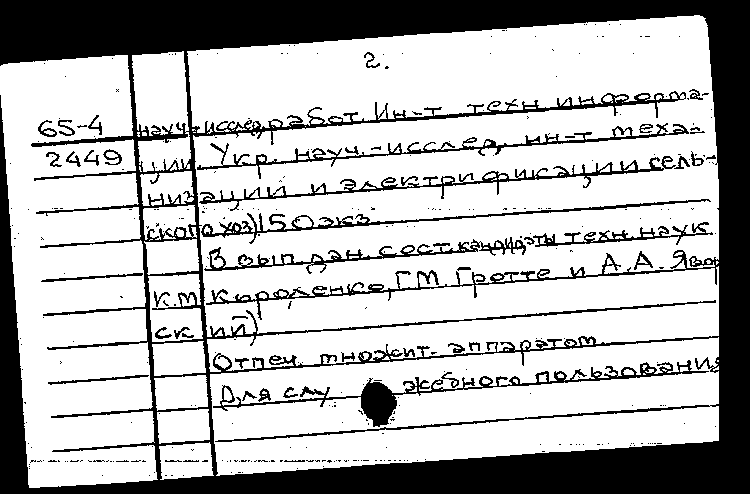 2.
65-4 науч-исслед. работ. Ин-т техн информа-
2449 ции. Укр. науч.-исслед. ин-т меха-
низации и электрификации сель-
ского хоз) 150 экз.
В вып. дан. сост. кандидаты техн. наук
К.М Короленко, Г.М. Гротте и А.А. Явор
ский)
Отпеч. множит. аппаратом.
Для служебного пользования